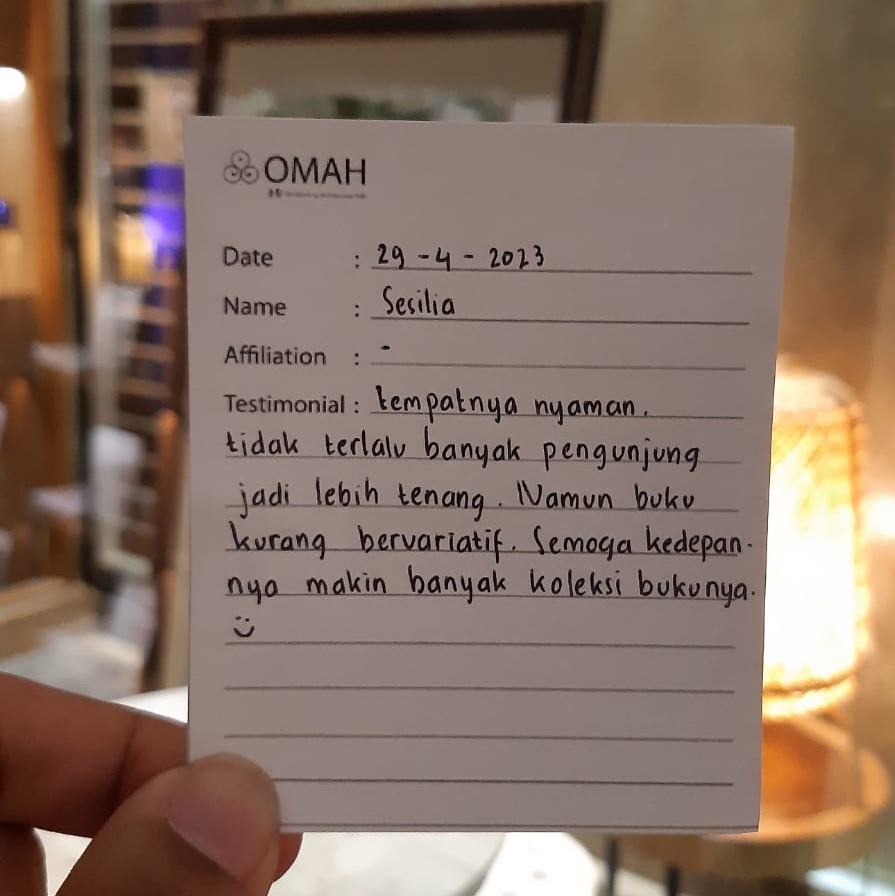 OMAH
Date : 29 - 4 - 2023
Name : Sesilia
Affiliation : -
Testimonial : tempatnya nyaman.
tidak terlalu banyak pengunjung
jadi lebih tenang. Namun buku
kurang bervariatif. Semoga kedepan-
nya makin banyak koleksi bukunya.